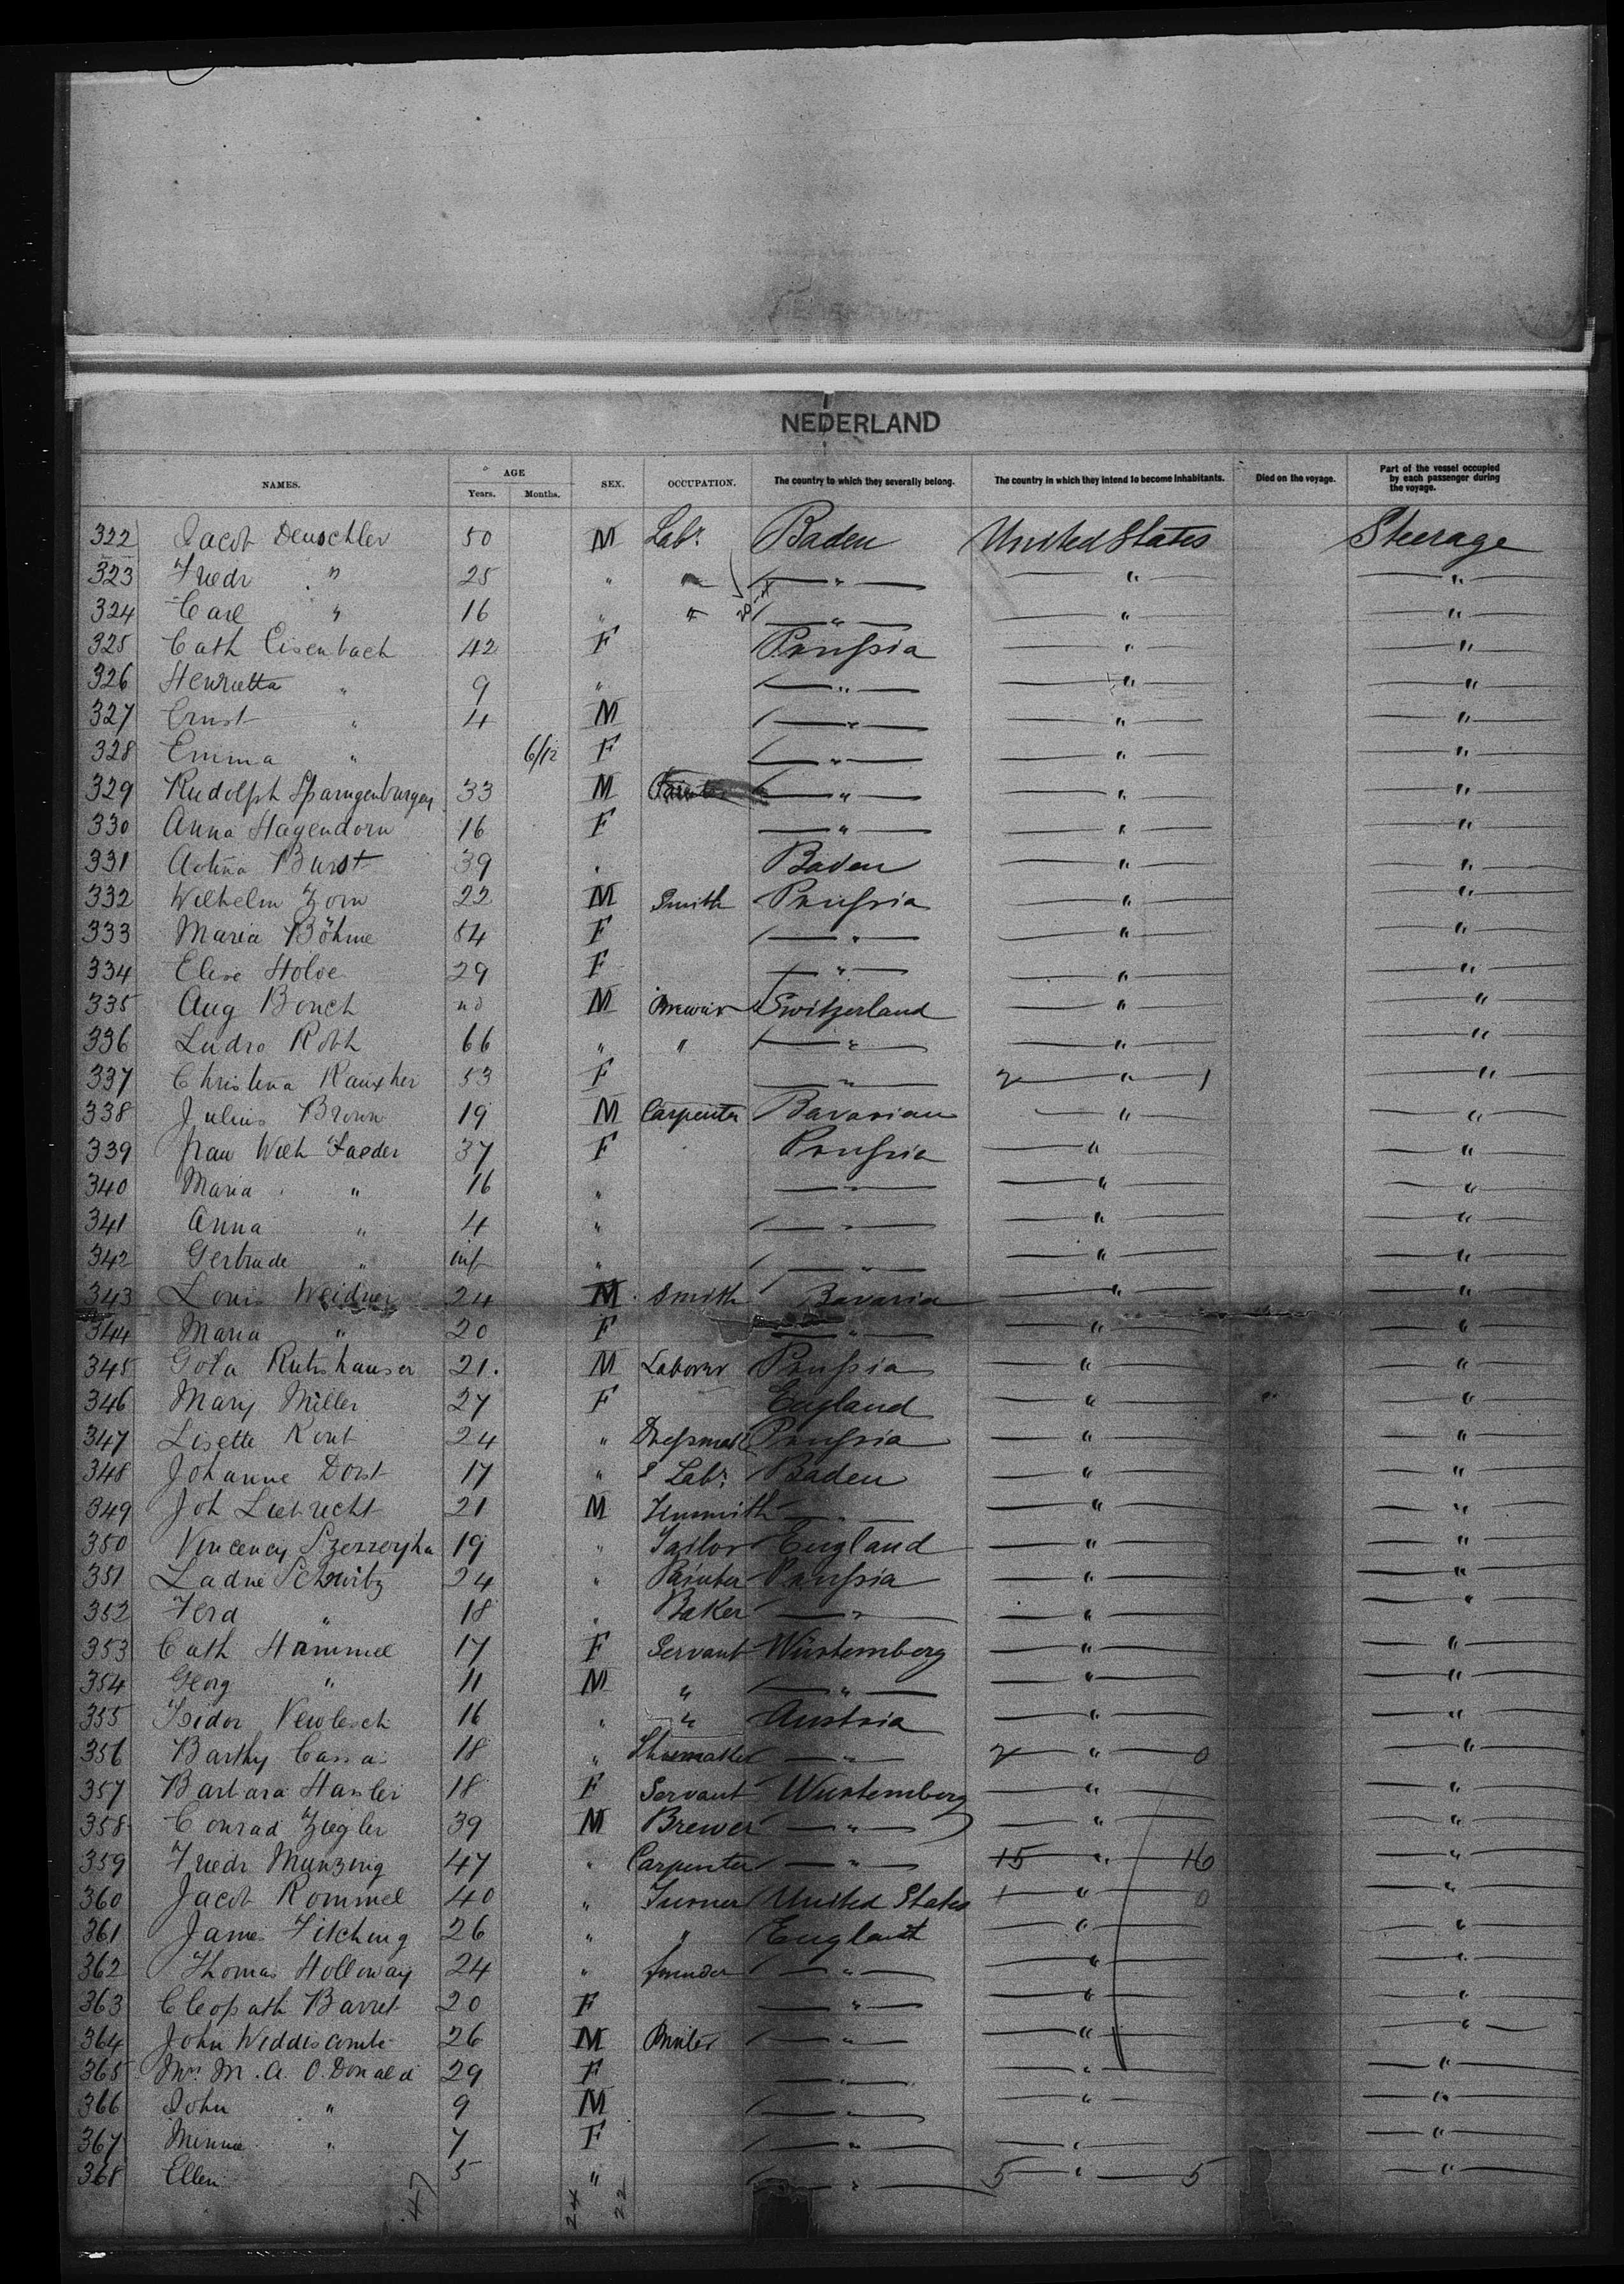 NEDERLAND
NAMES. AGE Years. Months. SEX. OCCUPATION. The country to which they severally belong. The country in which they intend to become inhabitants. Died on the voyage. Part of the vessel occupied by each passenger during the voyage.
322 Jacob Deuschler 50 M Labr. Baden United States Steerage
323 Friedr " 25 " " " " "
324 Carl " 16 " " " " "
325 Cath Eisenbach 42 F Prussia " "
326 Henrietta " 9 " " " "
327 Ernst " 4 M " " "
328 Emma " 6/12 F " " "
329 Rudolph 33 M Painter " " "
330 Anna Hagendorn 16 F " " "
331 Burst 39 " Baden " "
332 Wilhelm Zorn 22 M Smith Prussia " "
333 Maria Böhme 54 F " " "
334 Elise Holve 29 F " " "
335 Aug Bouch M Brewer Switzerland " "
336 Roth 66 " " " " "
337 Christina 53 F " 2 " 1 "
338 Julius Brown 19 M Carpenter Bavarian " "
339 Frau Wilh Faeder 37 F Prussia " "
340 Maria " 16 " " " "
341 Anna " 4 " " " "
342 Gertrude " inf " " " "
343 Louis Weidner 24 M Smith Bavaria " "
344 Maria " 20 F " " "
345 Rutishauser 21. M Laborer Prussia " "
346 Mary Miller 27 F England " "
347 Lisette Kont 24 " Dressmak Prussia " "
348 Johanne Dorst 17 " Labr. Baden " "
349 Joh Liebrecht 21 M Tinsmith " " "
350 Vincency 19 " Tailor England " "
351 Schwitz 24 " Painter Prussia " "
352 Ferd " 18 " Baker " " "
353 Cath Hammel 17 F Servant Würtemberg " "
354 Georg " 11 M " " " "
355 Isidor 16 " " Austria " "
356 Barthy 18 " Shoemaker " 2 " 0 "
357 Barbara Hasler 18 F Servant Wurtemberg " "
358 Conrad Ziegler 39 M Brewer " " "
359 Friedr Munzing 47 " Carpenter " 15 " 16 "
360 Jacob Rommel 40 " Turner United States 1 " 0 "
361 James Fitching 26 " " England " "
362 Thomas Holloway 24 " founder " " "
363 Cleopath Barret 20 F " " "
364 John Widdicombe 26 M " " "
365 Mrs. M. A. O.Donald 29 F " " "
366 John " 9 M " " "
367 Minnie " 7 F " " "
368 Ellen 5 " " 5 " 5 "
47 24 22